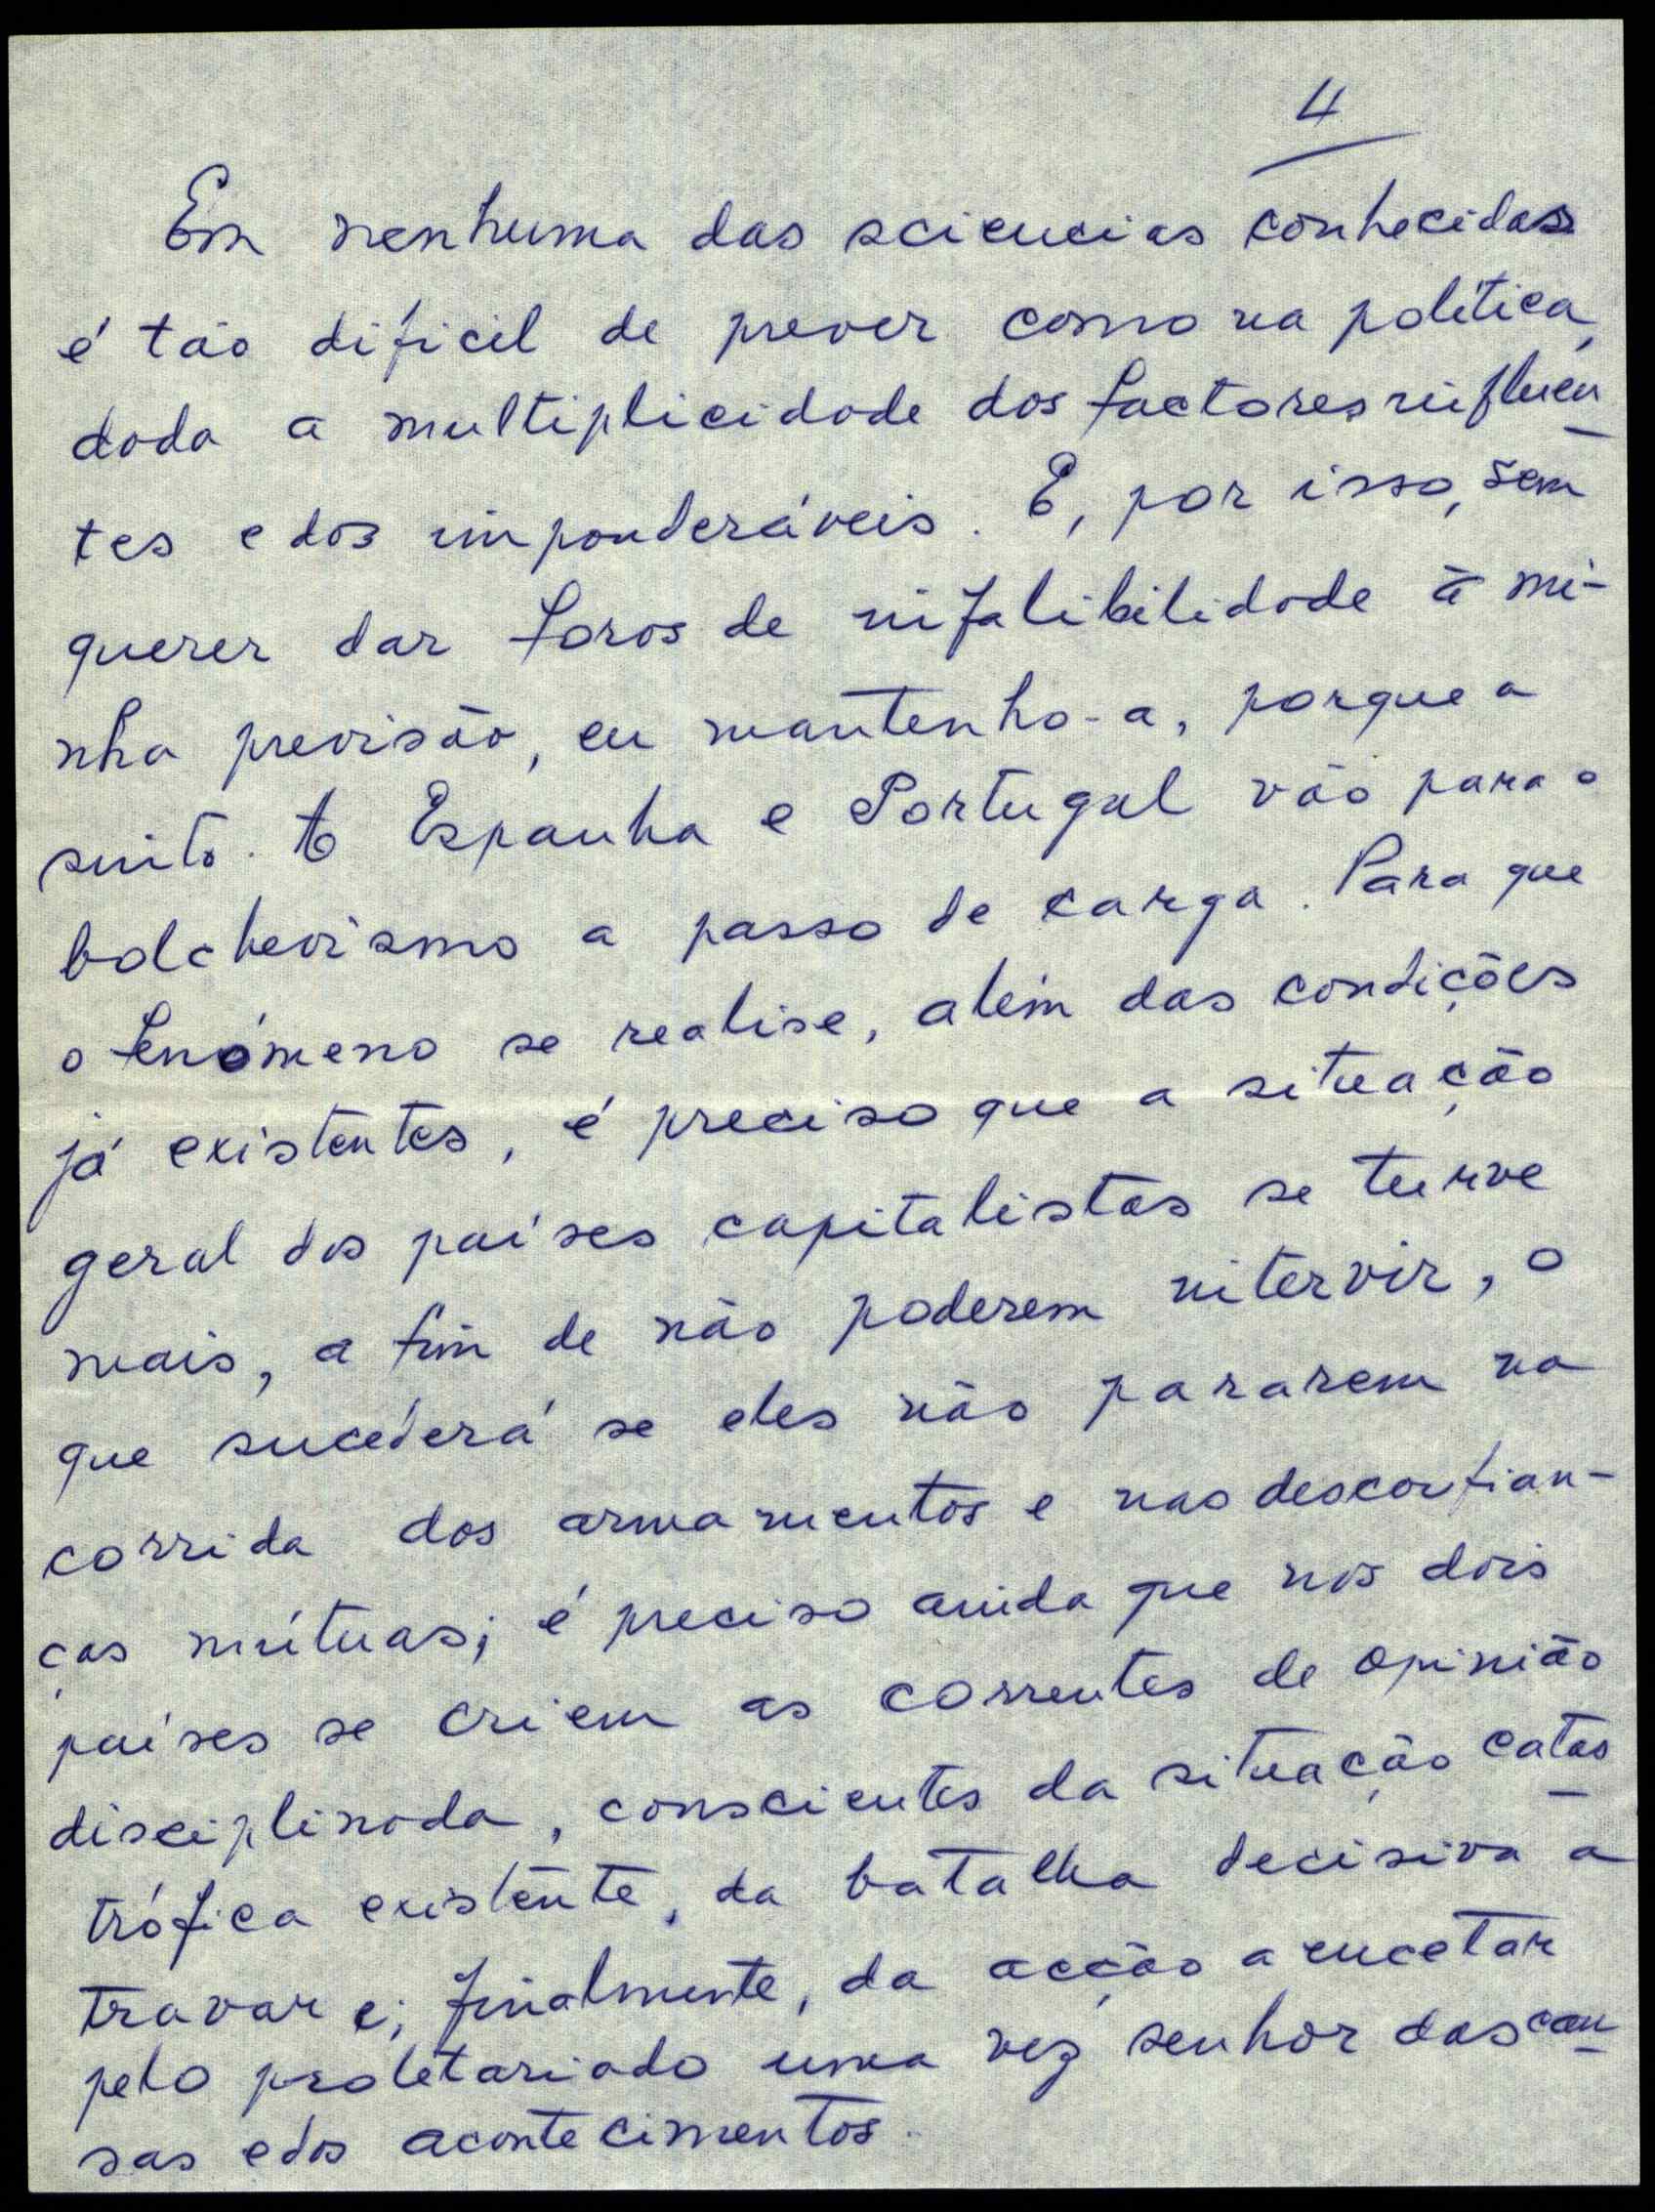 4
Em nenhuma das sciencias conhecidas
é tão difícil de prever como na política,
dada a multiplicidade dos factores influen-
tes e dos imponderáveis. E, por isso, sem
querer dar foros de infalibilidade à mi-
nha previsão, eu mantenho-a, porque a
sinto. A Espanha e Portugal vão para o
bolchevismo a passo de carga. Para que
o fenómeno se realise, além das condições
já existentes, é preciso que a situação
geral dos países capitalistas se turve
mais, a fim de não poderem intervir, o
que sucederá se eles não pararem na
corrida dos armamentos e nas desconfian-
ças mútuas; é preciso ainda que nos dois
países se criem as correntes de opinião
disciplinada, conscientes da situação catas-
trófica existente, da batalha decisiva a
travar e, finalmente, da acção a encetar
pelo proletariado uma vez senhor das cau-
sas e dos acontecimentos.